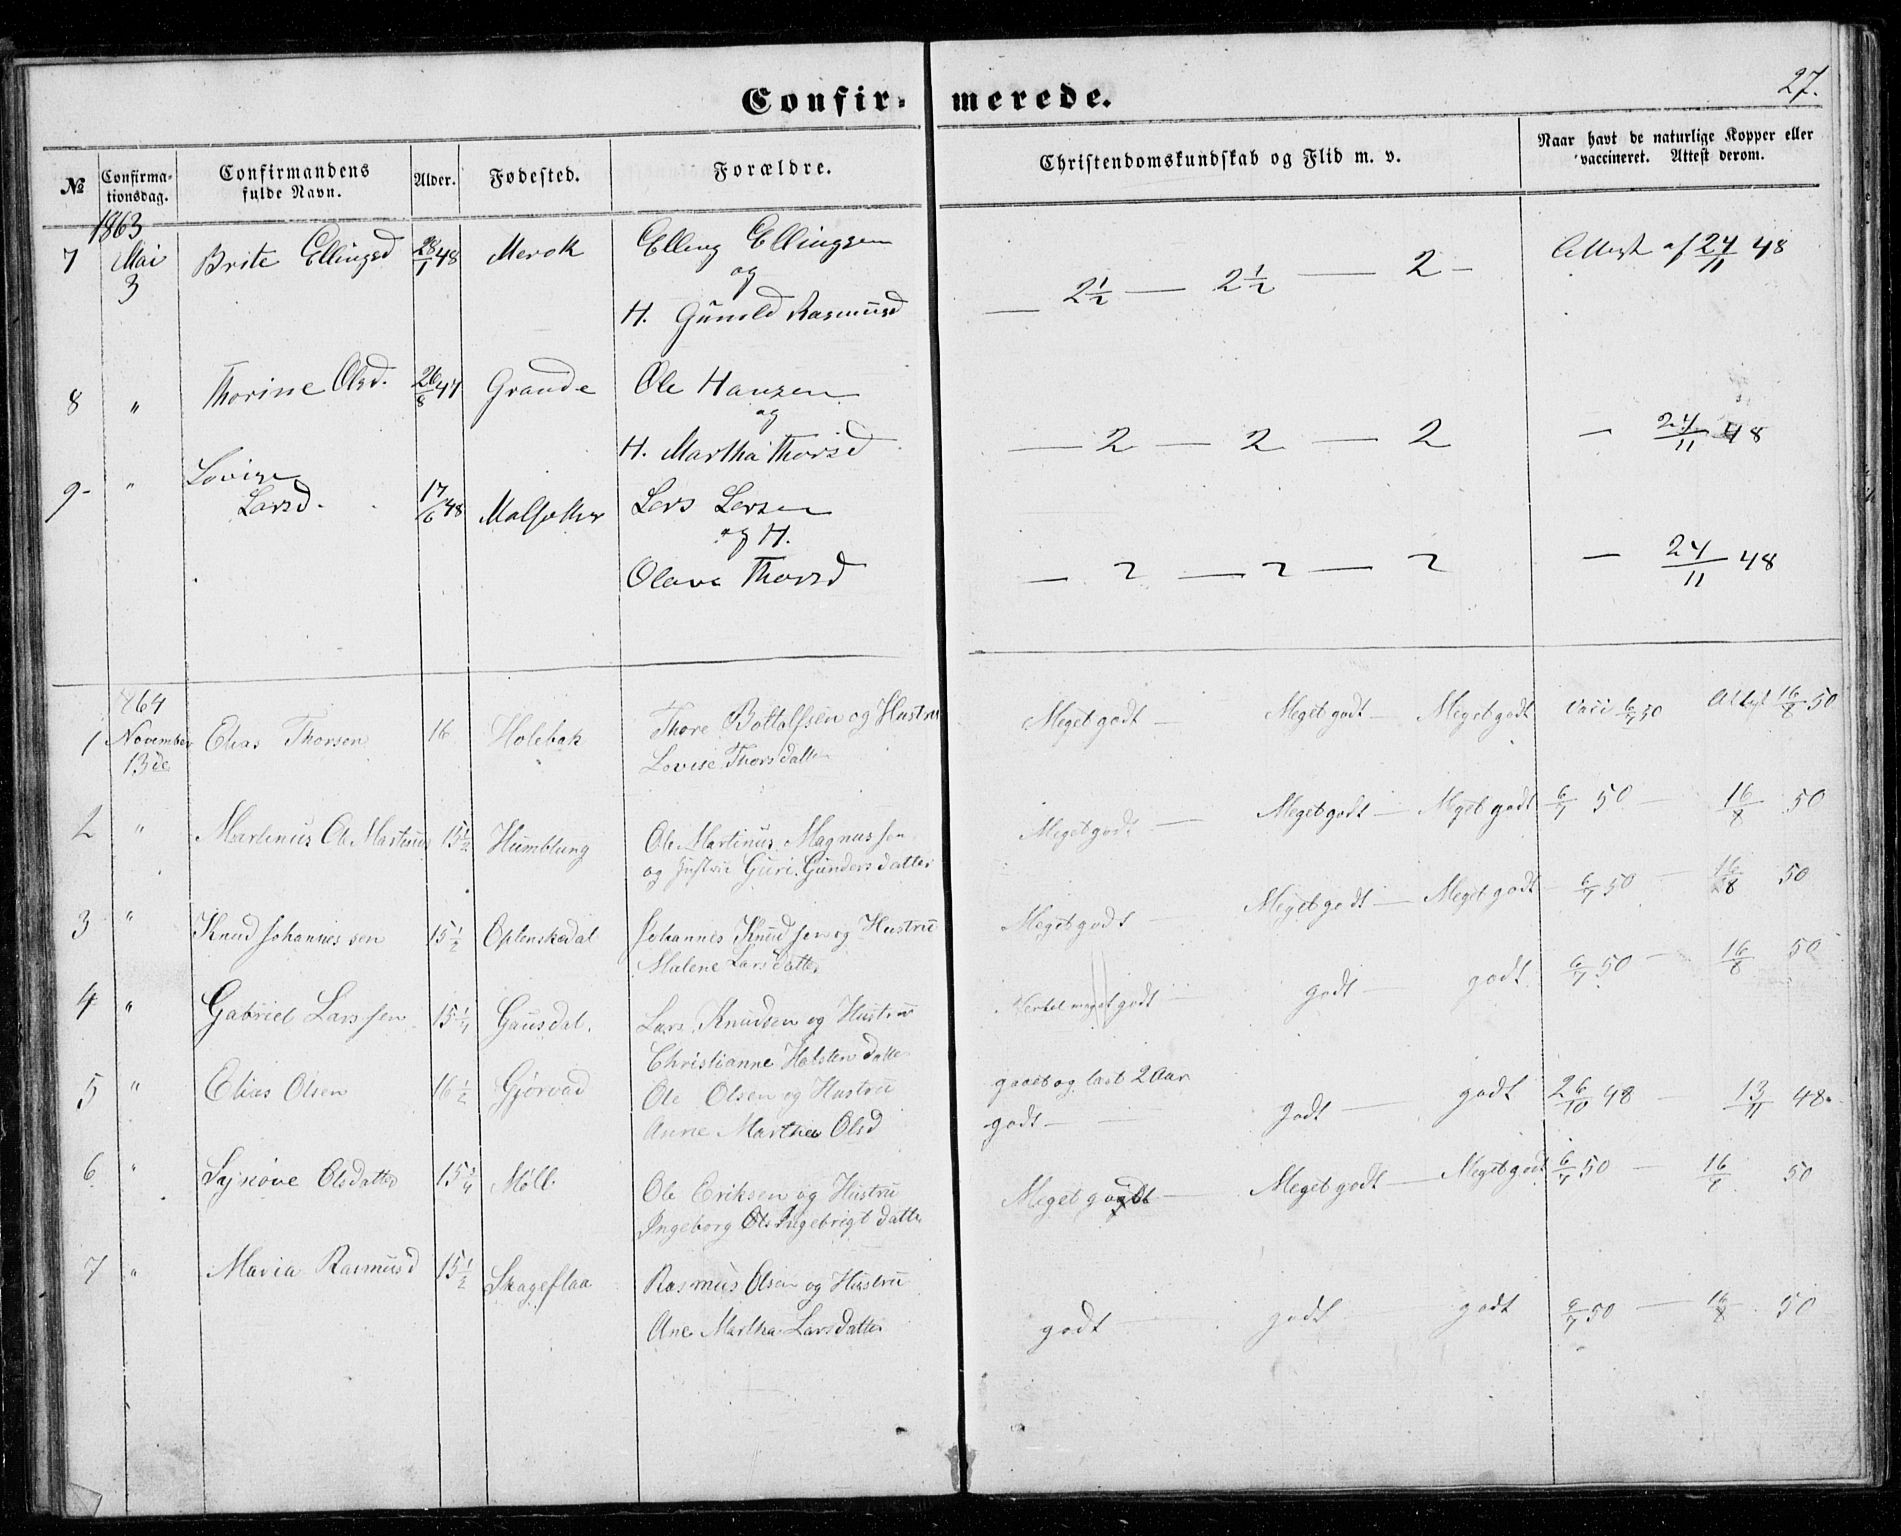 27.
Confir- merede.
№ Confirma-tionsdag. Confirmandens fulde Navn. Alder. Fødested. Forældre. Christendomskundskab og Flid m. v. Naar havt de naturlige Kopper eller vaccineret. Attest derom.
1863
7 Mai 3 Brite Ellingsd 28/1 48 Merok Elling Ellingsen
og
H. Gunild Rasmusd — 2½ — 2½ — 2 — Attest af 24/11 48
8 " Thorine Olsd. 26/8 47 Grande Ole Hansen
og
H. Martha Thorsd — 2 — 2 — 2 — 24/11 48
9 - " Lovise
Larsd. 17/6 48 Lars Larsen
og H.
Olave Thorsd — 2 — 2 — 2 — 24/11 48
1 864 November 13de Elias Thorsen 16 Holebak Thore Bottolfsen og Hustru
Lovise Thorsdatter Meget godt — Meget godt — Meget godt Vacc 6/7 50 Attest 16/8 50
2 " Martinus Ole Martinus 15½ Humblung Ole Martinus Magnussen
og Hustru Guri Gundersdatter Meget godt — Meget godt — Meget godt 6/7 50 — 16/8 50
3 " Knud Johannessen 15½ Oplenskedal Johannes Knudsen og Hustru
Malene Larsdatter Meget godt — Meget godt — Meget godt 6/7 50 — 16/8 50
4 " Gabriel Larssen 15¼ Gausdal. Lars Knudsen og Hustru
Christianne Holstendatter meget godt — godt — godt 6/7 50 — 16/8 50
5 " Elias Olsen 16½ Gjørvad Ole Olsen og Hustru
Anne Marthe Olsd gaaet og læst 2 Aar
godt — godt — godt 26/10 48 — 13/11 48.
6 " Sejnove Olsdatter 15¾ Møll Ole Eriksen og Hustru
Ingeborg Ols Ingebrigtdatter Meget godt — Meget godt — Meget godt 6/7 50 — 16/8 50
7 " Maria Rasmusd 15½ Skageflaa Rasmus Olsen og Hustru
Ane Martha Larsdatter godt godt godt 6/7 50 — 16/8 50